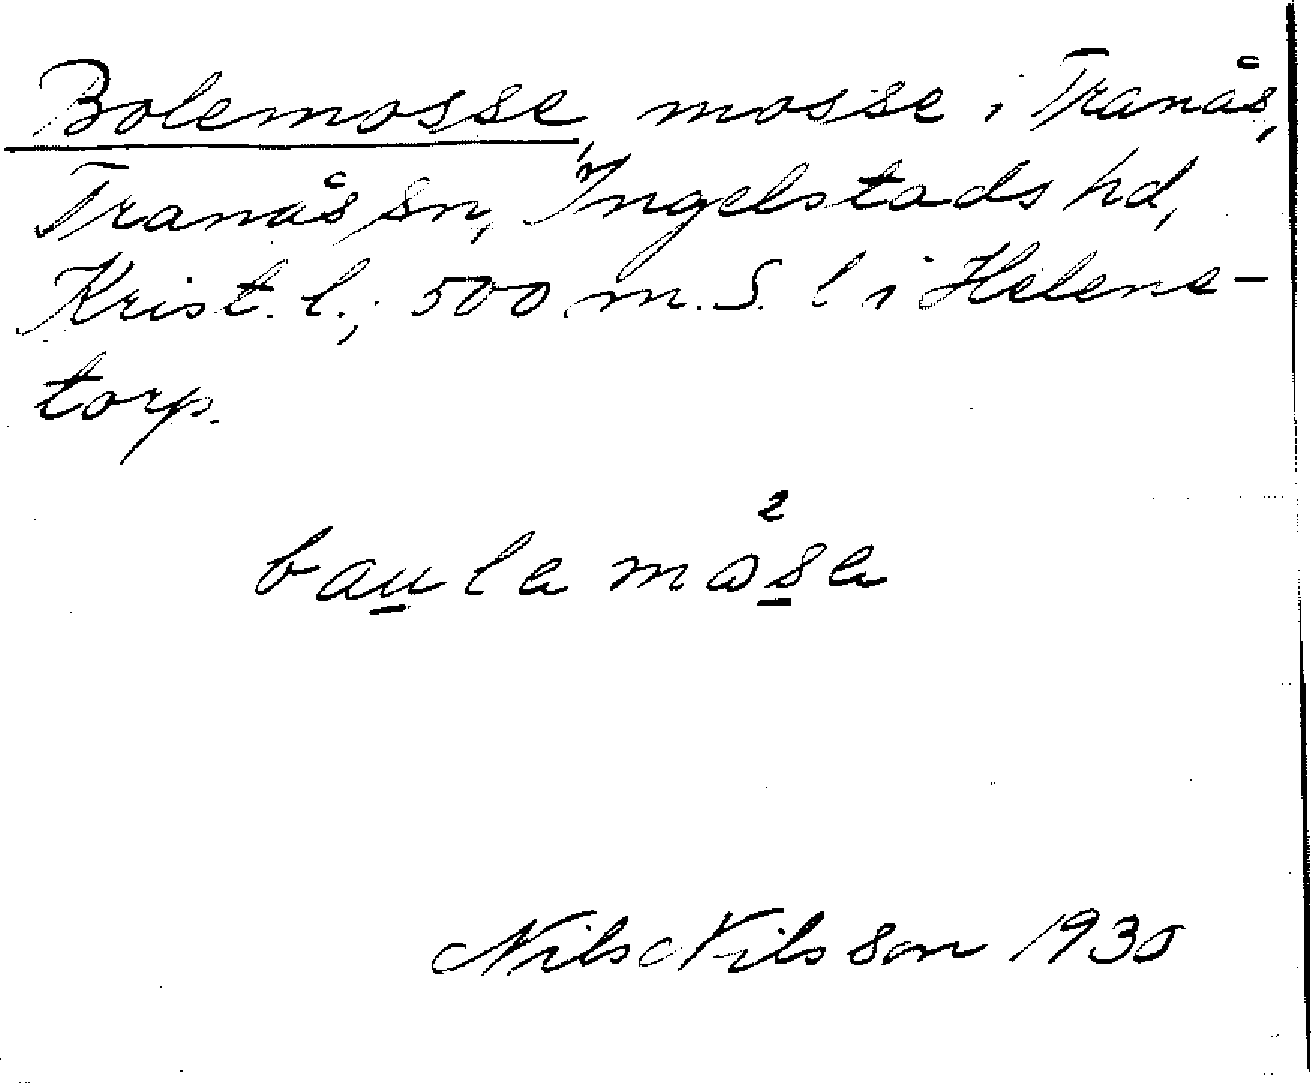 Bolemosse, mosse i Tranås,
Tranås sn, Ingelstads hd,
Krist. l.; 500 m. S. l i Helene-
torp.
2
baula måsa
Nils Nilsson 1930